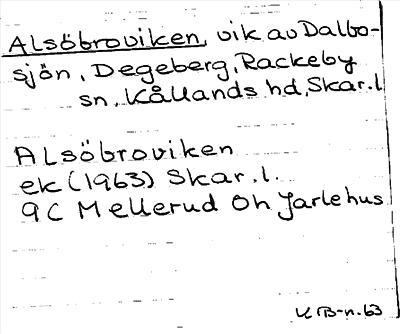 Alsöbroviken, vik av Dalbo-
sjön, Degeberg, Rackeby
sn, Kållands hd, Skar.l
Alsöbroviken
ek (1963) Skar.l.
9C Mellerud Öh Jarlehus
KB-n.63